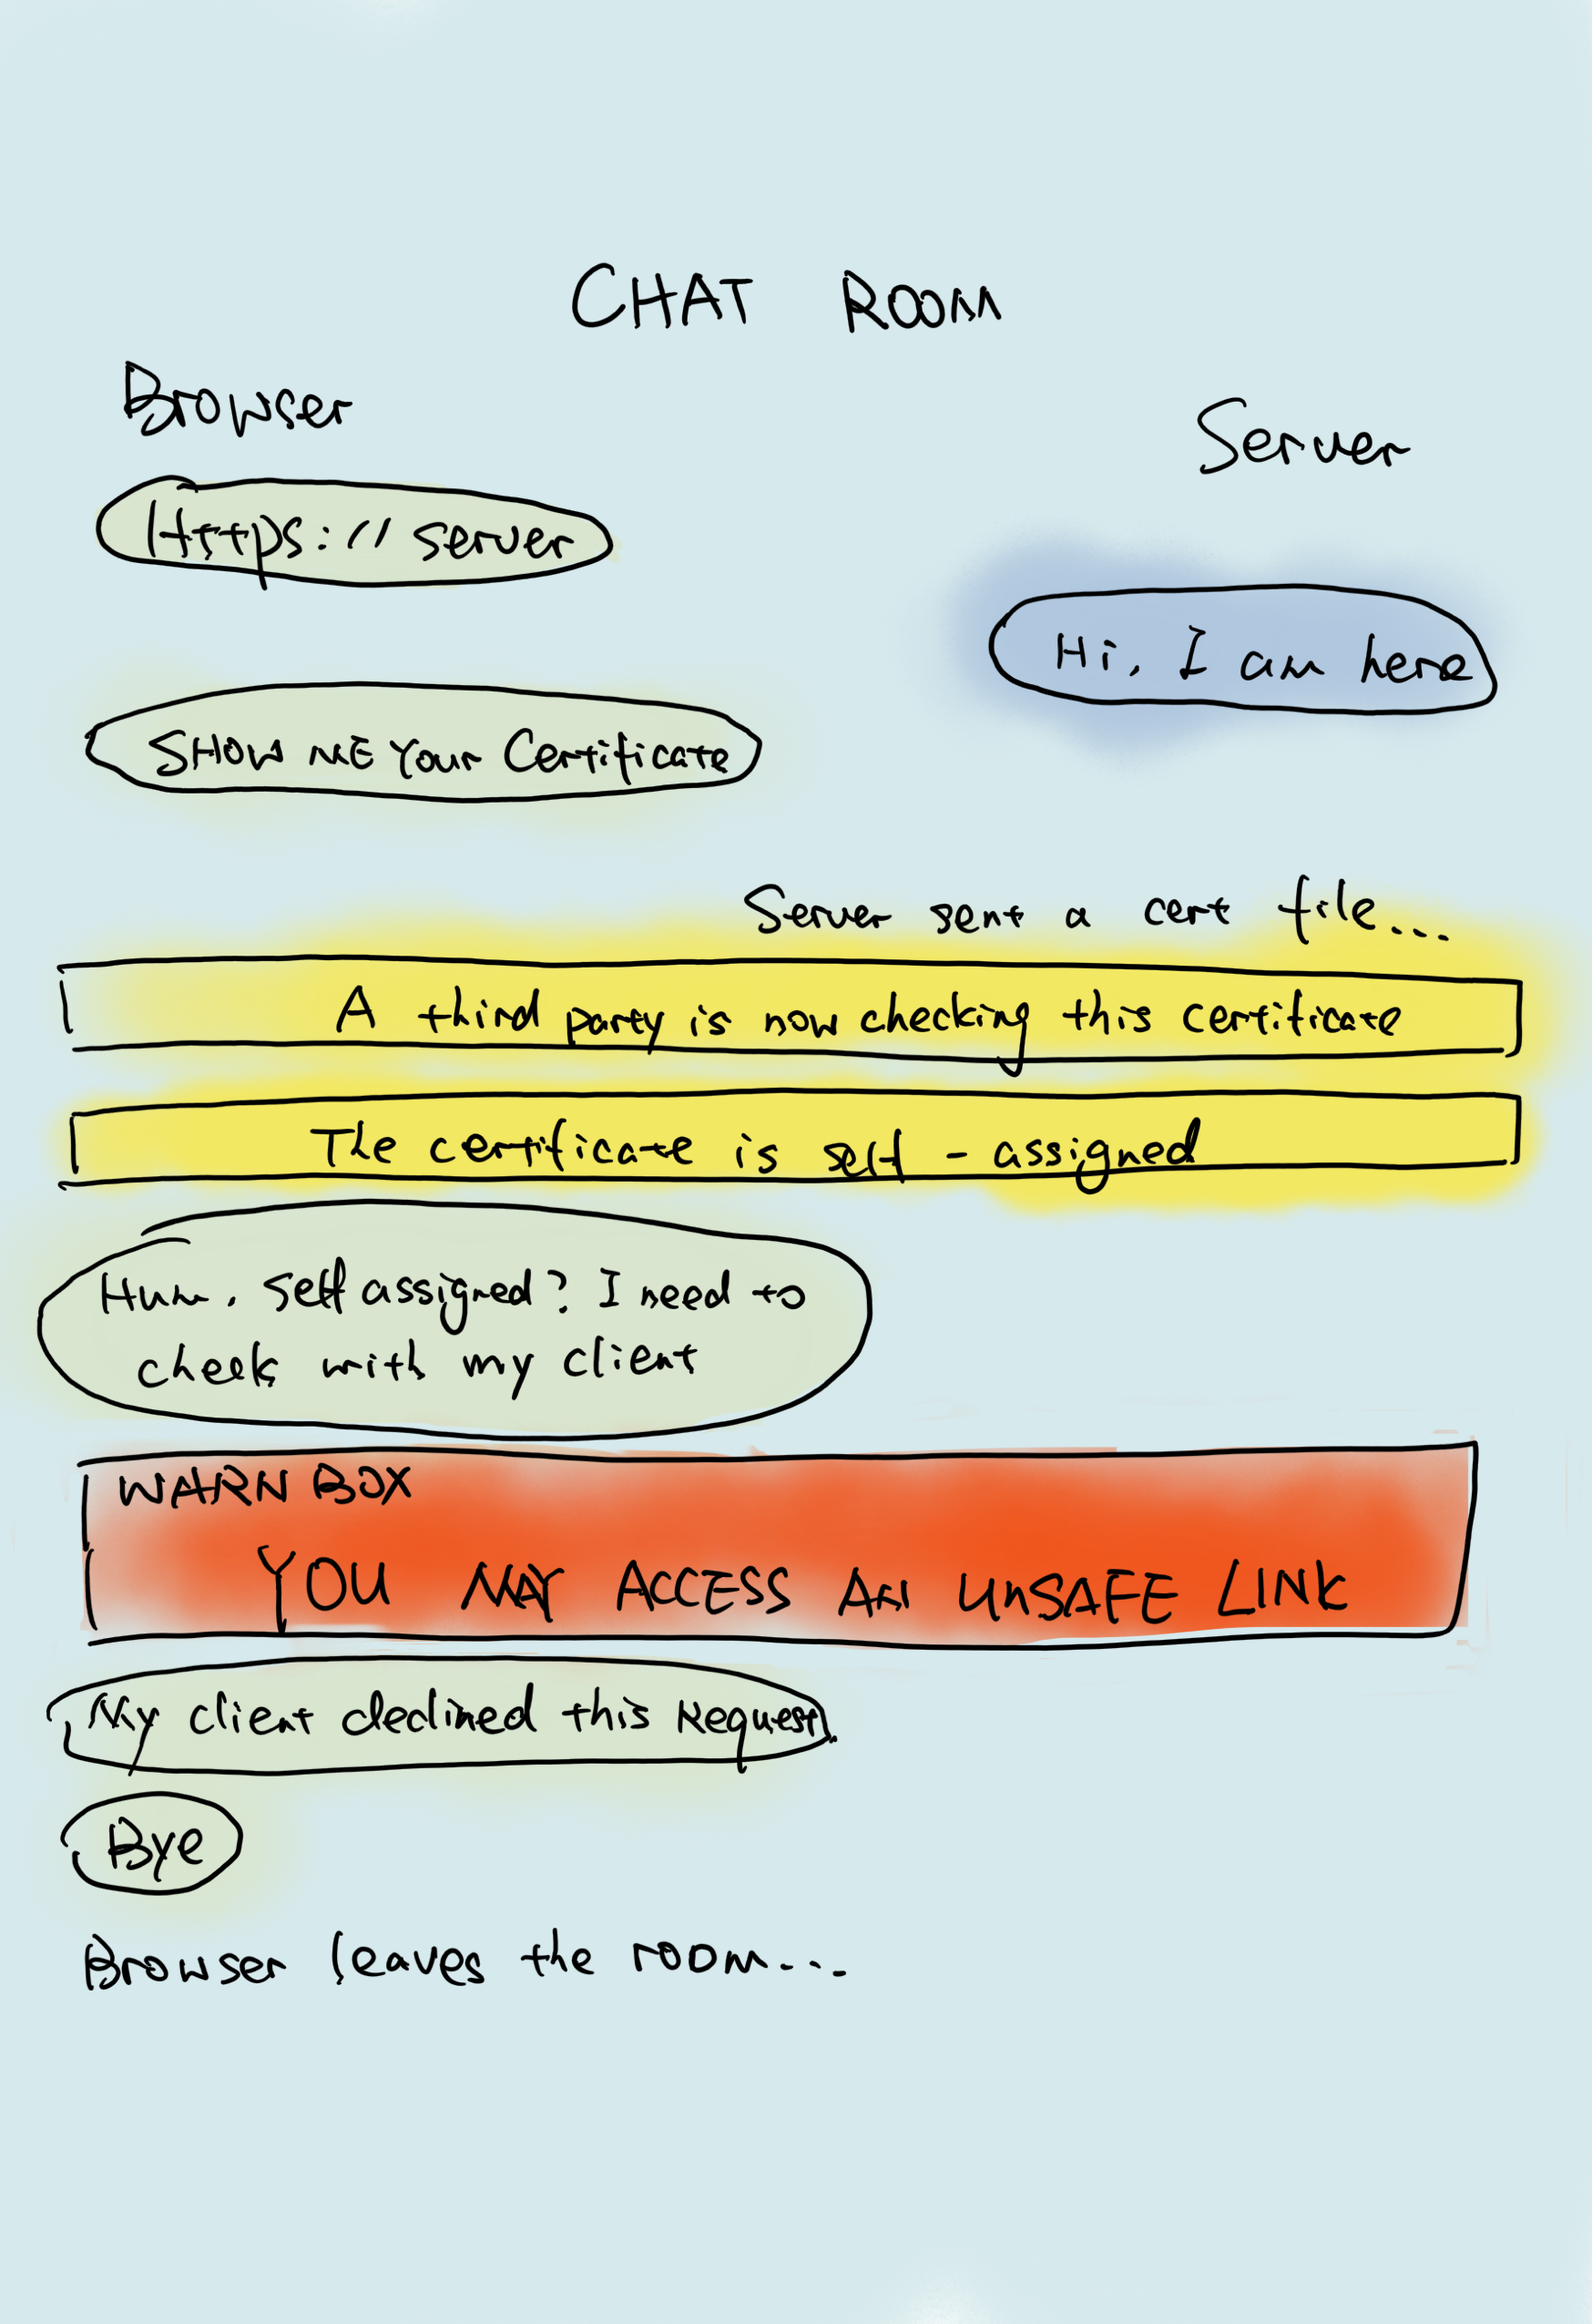 CHAT ROOM
Browser
Server
Https:// server
Hi, I am here
SHOW ME Your Certificate
Server sent a cert file...
A third party is now checking this certificate
The certificate is self - assigned
Hum, Self assigned? I need to
check with my client
WARN BOX
YOU MAY ACCESS AN UnSAFE LINK
My client declined this Request.
Bye
Browser leaves the room...